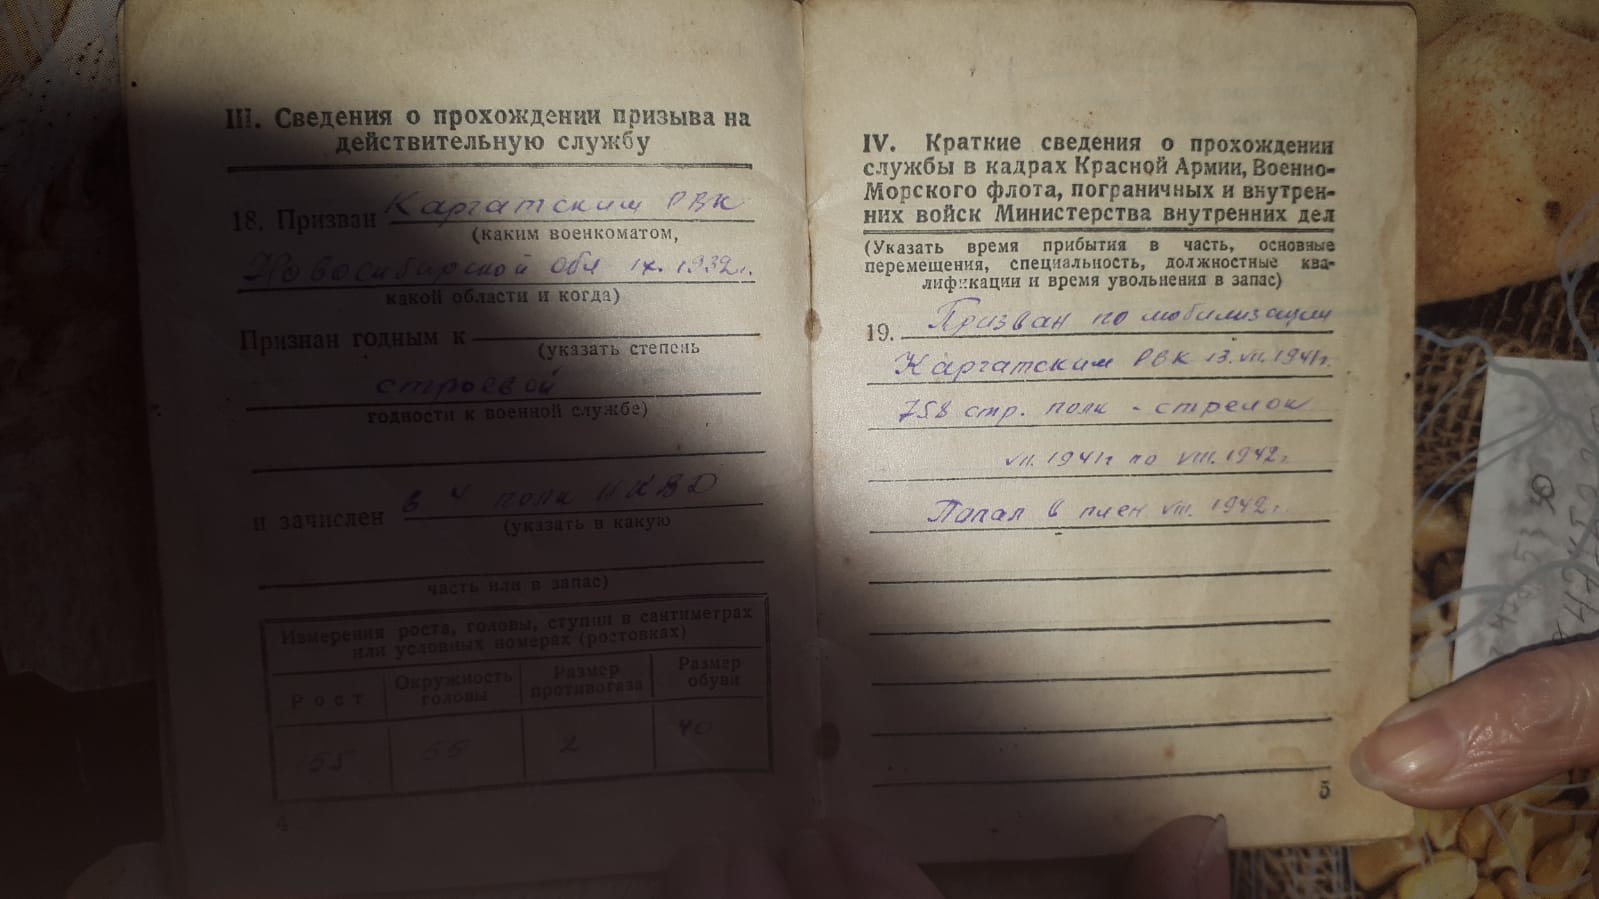 III. Сведения о прохождении призыва на
действительную службу
18. Призван Каргатским РВК
(каким военкоматом,
Новосибирской обл IX. 1932г.
какой области и когда)
Признан годным к
(указать степень
строевой
годности к военной службе)
и зачислен в 4 полк НКВД
(указать в какую
часть или в запас)
Измерения роста, головы, ступни в сантиметрах
или условных номерах (ростовках)
Рост Окружность головы Размер противогаза Размер обуви
55 55 2 40
4
IV. Краткие сведения о прохождении
службы в кадрах Красной Армии, Военно-
Морского флота, пограничных и внутрен-
них войск Министерства внутренних дел
(Указать время прибытия в часть, основные
перемещения, специальность, должностные ква-
лификации и время увольнения в запас)
19. Призван по мобилизации
Каргатским РВК 13.VII.1941г.
758 стр. полк - стрелок
VII.1941г по VIII.1942г
Попал в плен VIII.1942г.
5